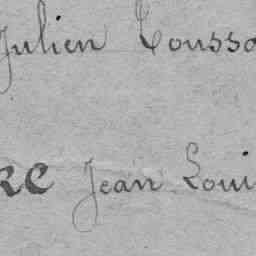 Julien Tousso
KE Jean Loui